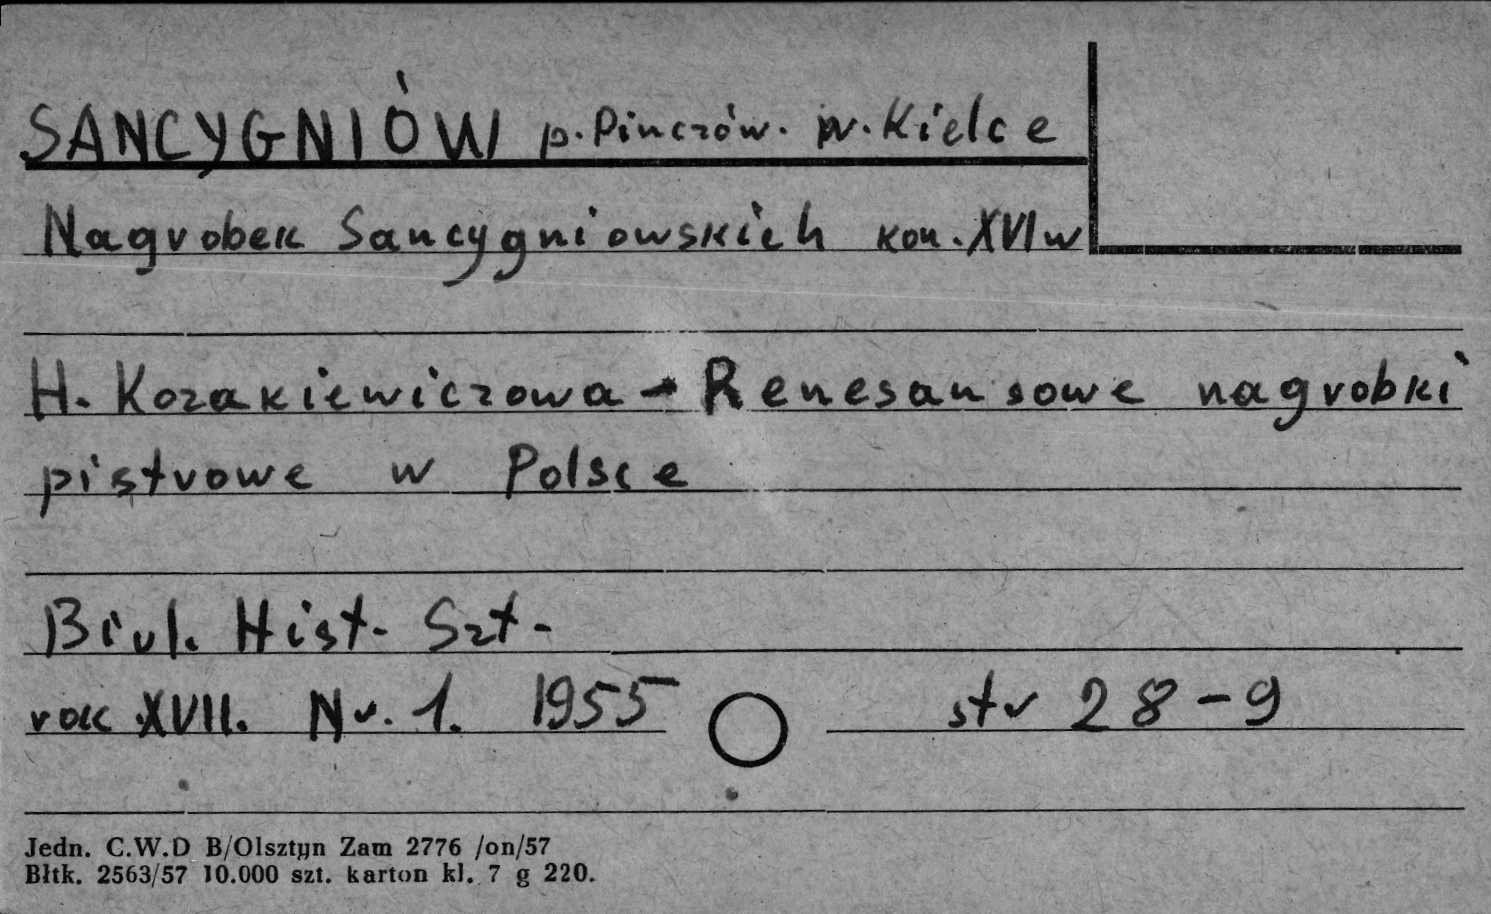 SANCYGNIÓW p. Pinczów. w. Kielce
Nagrobek Sancygniowskich kon. XVI w
H. Kozakiewiczowa - Renesansowe nagrobki
piętrowe w Polsce
Biul. Hist. Szt.
rok XVII. Nr. 1. 1955 str 28-9
Jedn. C.W.D B/Olsztyn Zam 2776 /on/57
Błtk. 2563/57 10.000 szt. karton kl. 7 g 220.